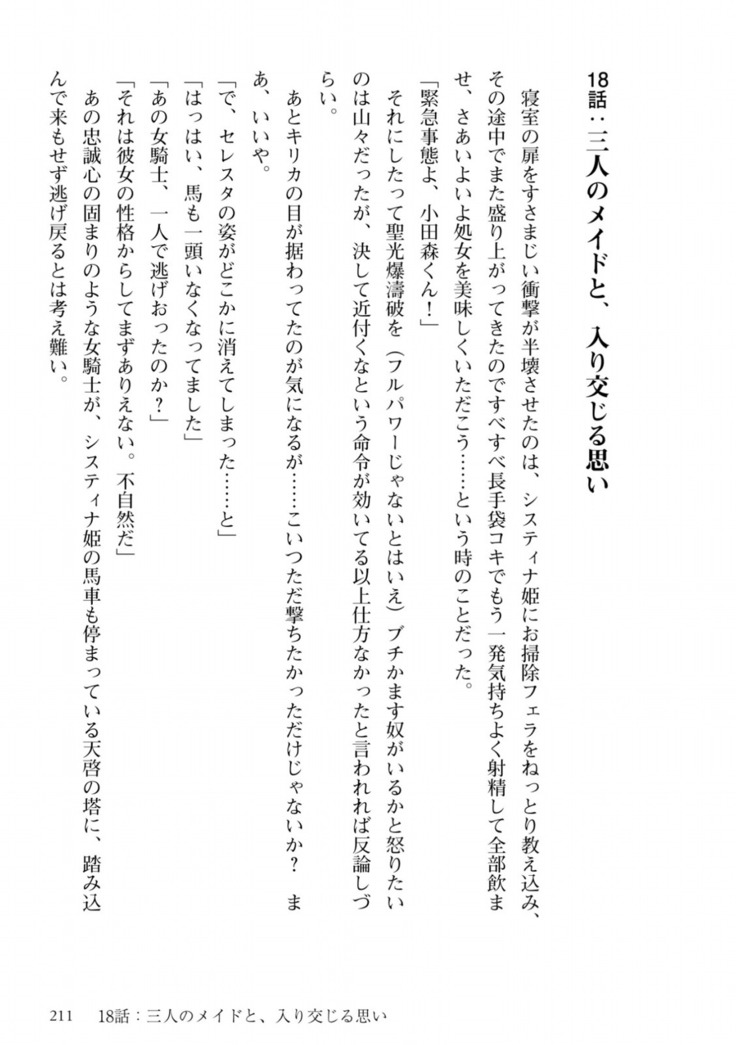 18話：三人のメイドと、入り交じる思い
　寝室の扉をすさまじい衝撃が半壊させたのは、システィナ姫にお掃除フェラをねっとり教え込み、
その途中でまた盛り上がってきたのですべすべ長手袋コキでもう一発気持ちよく射精して全部飲ま
せ、さあいよいよ処女を美味しくいただこう……という時のことだった。
「緊急事態よ、小田森くん！」
　それにしたって聖光爆濤破を（フルパワーじゃないとはいえ）ブチかます奴がいるかと怒りたい
のは山々だったが、決して近付くなという命令が効いてる以上仕方なかったと言われれば反論しづ
らい。
　あとキリカの目が据わってたのが気になるが……こいつただ撃ちたかっただけじゃないか？　ま
あ、いいや。
「で、セレスタの姿がどこかに消えてしまった……と」
「はっはい、馬も一頭いなくなってました」
「あの女騎士、一人で逃げおったのか？」
「それは彼女の性格からしてまずありえない。不自然だ」
　あの忠誠心の固まりのような女騎士が、システィナ姫の馬車も停まっている天啓の塔に、踏み込
んで来もせず逃げ戻るとは考え難い。
211　18話：三人のメイドと、入り交じる思い